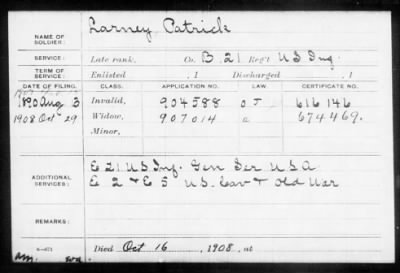 NAME OF SOLDIER: Larney, Patrick
SERVICE: Late rank, Co. B, 21 Reg't U S Inf.
TERM OF SERVICE: Enlisted , 1 Discharged , 1
DATE OF FILING. CLASS. APPLICATION NO. LAW. CERTIFICATE NO.
1890 Aug 3 Invalid, 904588 O J 616146
1908 Oct 29 Widow, 907014 a 674469.
Minor,
ADDITIONAL SERVICES: E 21 U S Inf. Gen Ser U S A
E 2 & E 5 U.S. Cav & Old War
REMARKS:
Died Oct 16, 1908, at